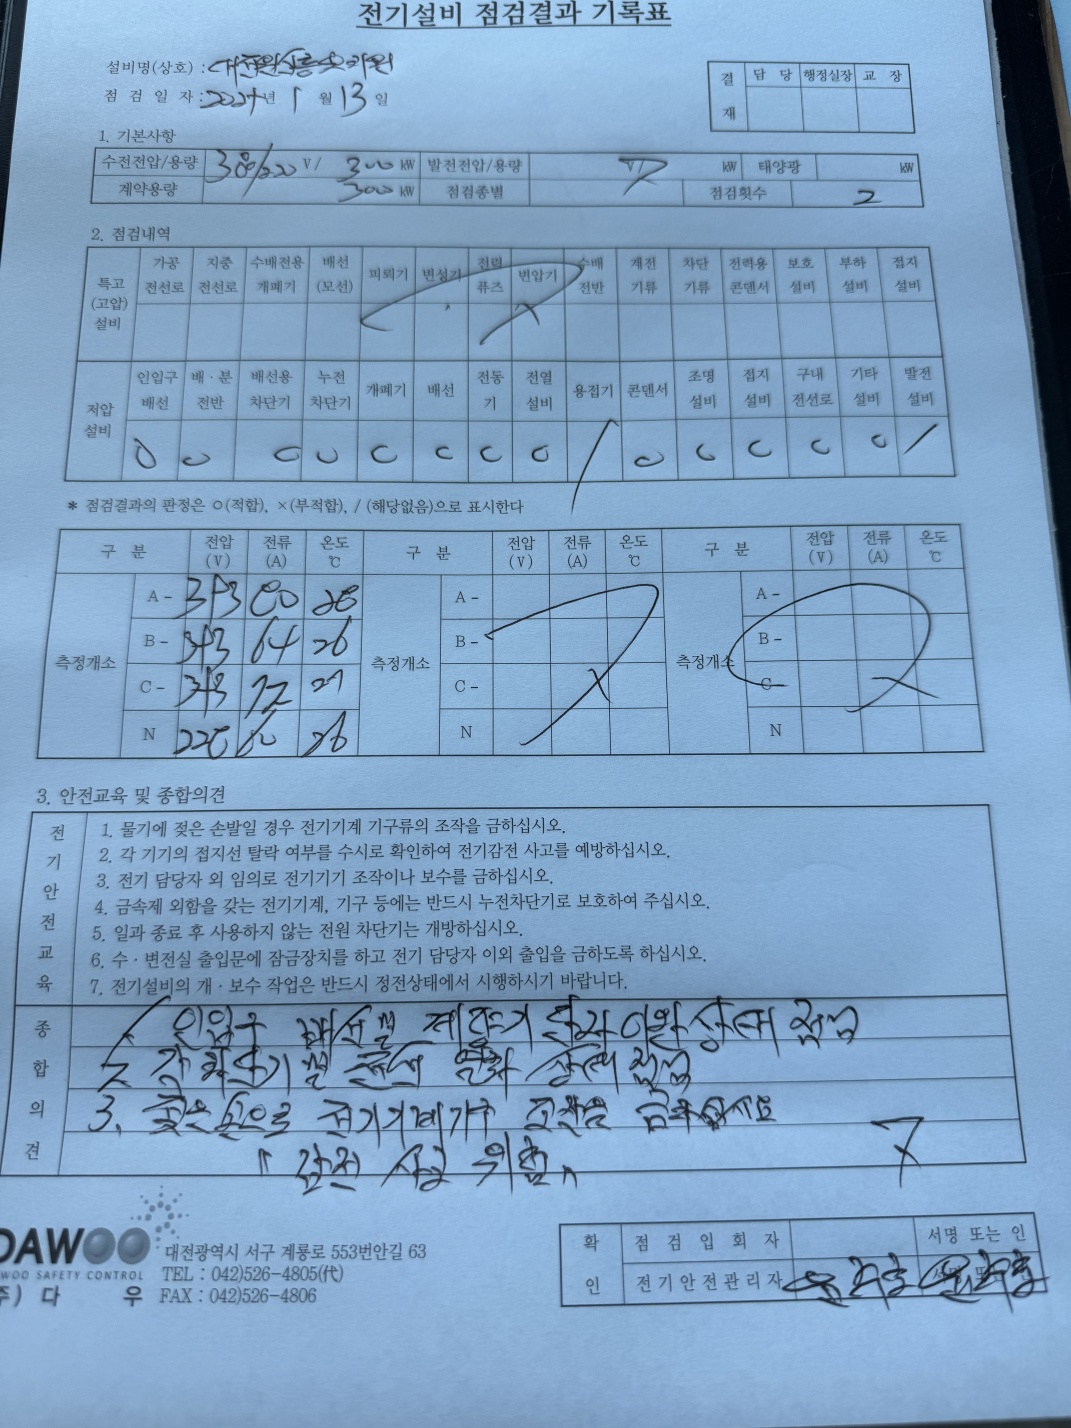 전기설비 점검결과 기록표
설비명(상호) :
점 검 일 자 : 2024년 1 월 13 일
결 재 담 당 행정실장 교 장
1. 기본사항
수전전압/용량 380/220 V / 300 kW 발전전압/용량 V/ kW 태양광 kW
계약용량 300 kW 점검종별 점검횟수 2
2. 점검내역
특고 (고압) 설비 가공 전선로 지중 전선로 수배전용 개폐기 배선 (모선) 피뢰기 변성기 전력 퓨즈 변압기 수배 전반 계전 기류 차단 기류 전력용 콘덴서 보호 설비 부하 설비 접지 설비
저압 설비 인입구 배선 배·분 전반 배선용 차단기 누전 차단기 개폐기 배선 전동 기 전열 설비 용접기 콘덴서 조명 설비 접지 설비 구내 전선로 기타 설비 발전 설비
○ ○ ○ ○ ○ ○ ○ ○ / ○ ○ ○ ○ ○ /
* 점검결과의 판정은 ○(적합), ×(부적합), / (해당없음)으로 표시한다
구 분 전압 (V) 전류 (A) 온도 ℃ 구 분 전압 (V) 전류 (A) 온도 ℃ 구 분 전압 (V) 전류 (A) 온도 ℃
측정개소 측정개소 측정개소
A - A - A -
B - 64 26 B - B -
C - 72 27 C - C -
N 26 N N
3. 안전교육 및 종합의견
전기안전교육
1. 물기에 젖은 손발일 경우 전기기계 기구류의 조작을 금하십시오.
2. 각 기기의 접지선 탈락 여부를 수시로 확인하여 전기감전 사고를 예방하십시오.
3. 전기 담당자 외 임의로 전기기기 조작이나 보수를 금하십시오.
4. 금속제 외함을 갖는 전기기계, 기구 등에는 반드시 누전차단기로 보호하여 주십시오.
5. 일과 종료 후 사용하지 않는 전원 차단기는 개방하십시오.
6. 수·변전실 출입문에 잠금장치를 하고 전기 담당자 이외 출입을 금하도록 하십시오.
7. 전기설비의 개·보수 작업은 반드시 정전상태에서 시행하시기 바랍니다.
종합의견
1 인입구 배선 및 상태 점검
2 각 차단기 및 상태 점검
3. 젖은 손으로 전기기계기구 조작을 금하십시오
"감전 사고 위험"
DAWOO
DAWOO SAFETY CONTROL
(주) 다 우
대전광역시 서구 계룡로 553번안길 63
TEL : 042)526-4805(代)
FAX : 042)526-4806
확 인 점 검 입 회 자 서명 또는 인
전기안전관리자